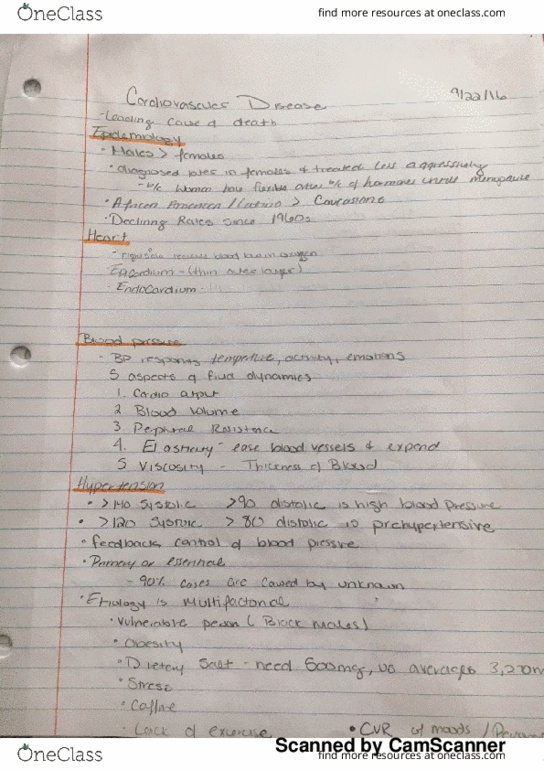 OneClass
find more resources at oneclass.com
Cardiovascular Disease
9/22/16
-Leading cause of death
Epidemiology
• Males > females
• diagnosed later in females & treated less aggressively
- b/c women have flexible b/c of hormones until menopause
• African American/Latino > Caucasians
• Declining Rates since 1960s
Heart
- right side receives blood oxygen
Epicardium - (thin outer layer)
• Endocardium -
Blood pressure
• BP responds activity, emotions
5 aspects of fluid dynamics
1. Cardio
2 Blood Volume
3. Resistance
4. - ease blood vessels expend
5. Viscosity - Thickness of Blood
Hypertension
• >140 systolic >90 distolic is high blood pressure
• >120 systolic >80 distolic is prehypertensive
• feedback control of blood pressure
• Primary or essential
- 90% cases are caused by unknown
• Etiology is Multifactorial
• Vulnerable person (Black males)
• Obesity
• Dietary Salt - need 500mg, US averages
• Stress
• Caffine
• Lack of exercise
• CVR of moods /
Scanned by CamScanner
OneClass
find more resources at oneclass.com